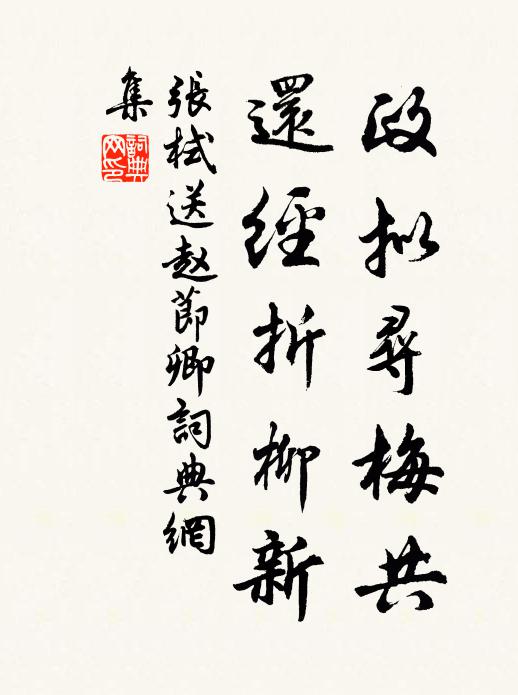 政拟尋梅共
還經折柳新
張栻送赵節卿詞典網
集
詞典網印